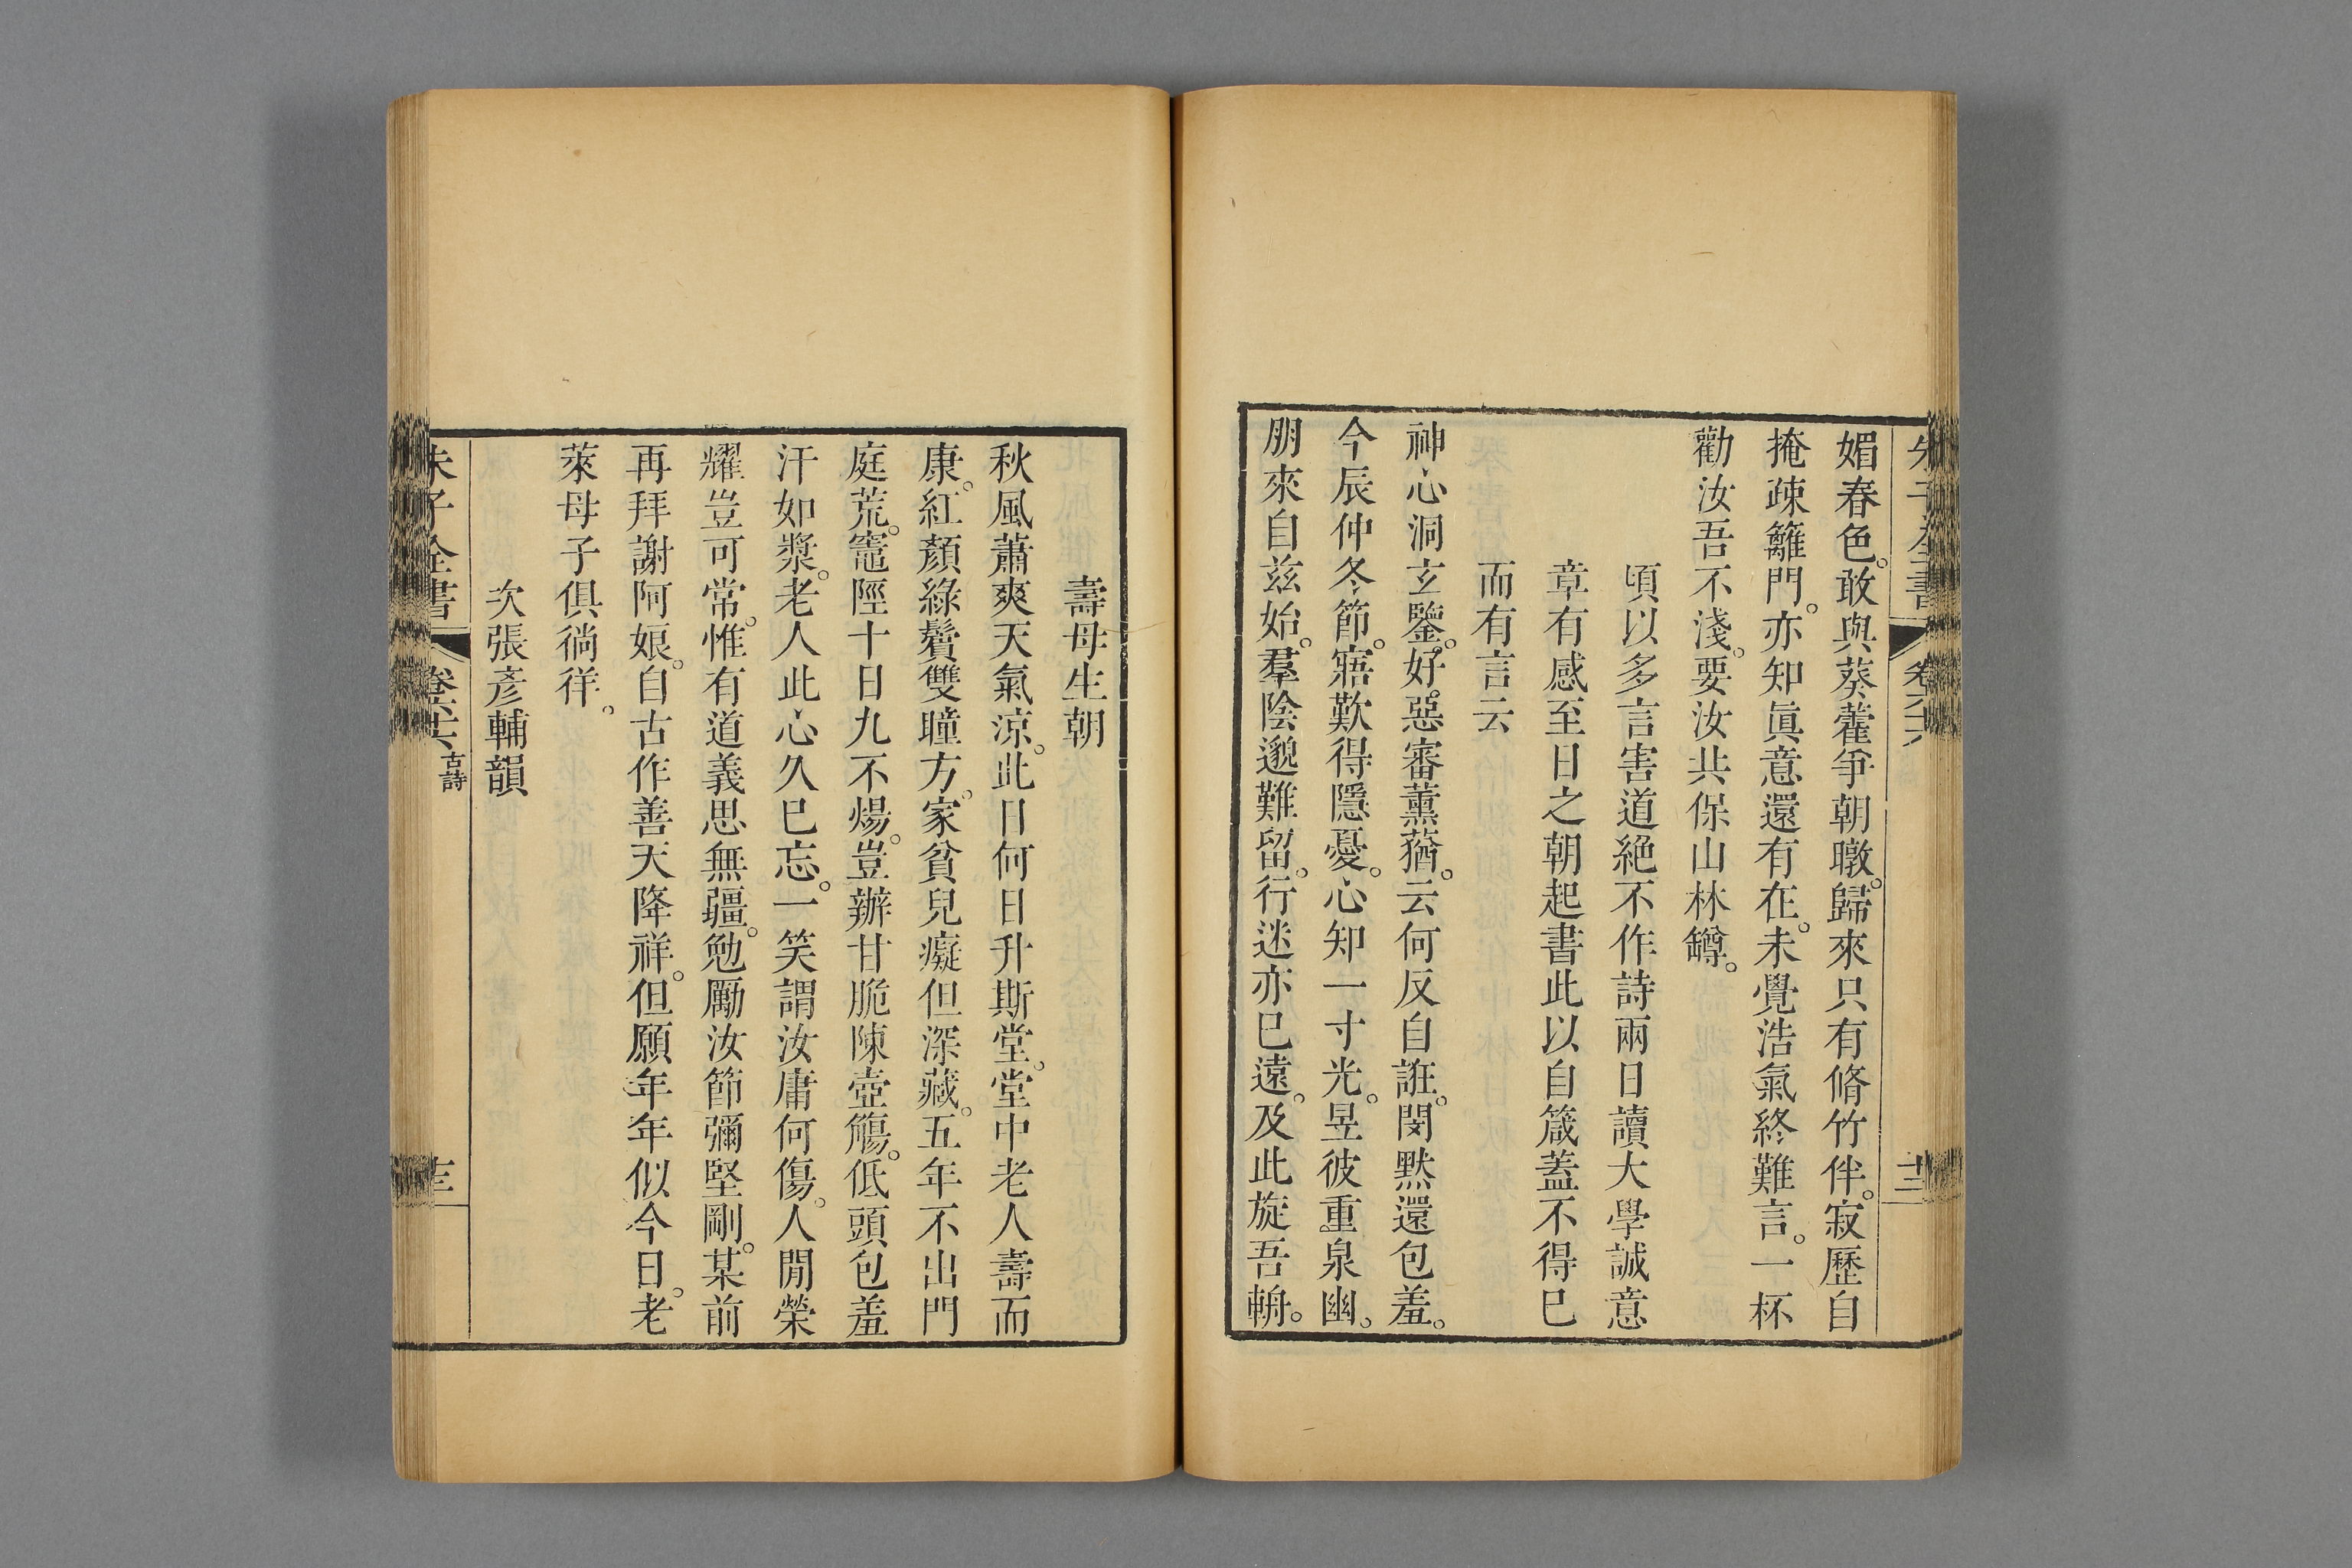 媚春色。敢與葵藿爭朝暾。歸來只有脩竹伴。寂歷自
掩疎籬門。亦知眞意還有在。未覺浩氣終難言。一杯
勸汝吾不淺。要汝共保山林罇。
頃以多言害道絶不作詩兩日讀大學誠意
章有感至日之朝起書此以自箴蓋不得已
而有言云
神心洞玄鑒。好惡審薰蕕。云何反自誑。閔默還包羞。
今辰仲冬節。寤歎得隱憂。心知一寸光。昱彼重泉幽。
朋來自茲始。羣陰邈難留。行迷亦已遠。及此旋吾輈。
壽母生朝
秋風蕭爽天氣涼。此日何日升斯堂。堂中老人壽而
康。紅顏綠鬢雙瞳方。家貧兒癡但深藏。五年不出門
庭荒。竈陘十日九不煬。豈辦甘脆陳壺觴。低頭包羞
汗如漿。老人此心久已忘。一笑謂汝庸何傷。人閒榮
耀豈可常。惟有道義思無疆。勉厲汝節彌堅剛。某前
再拜謝阿娘。自古作善天降祥。但願年年似今日。老
萊母子俱徜徉。
次張彥輔韻
朱子全書 卷六十六 古詩 十三